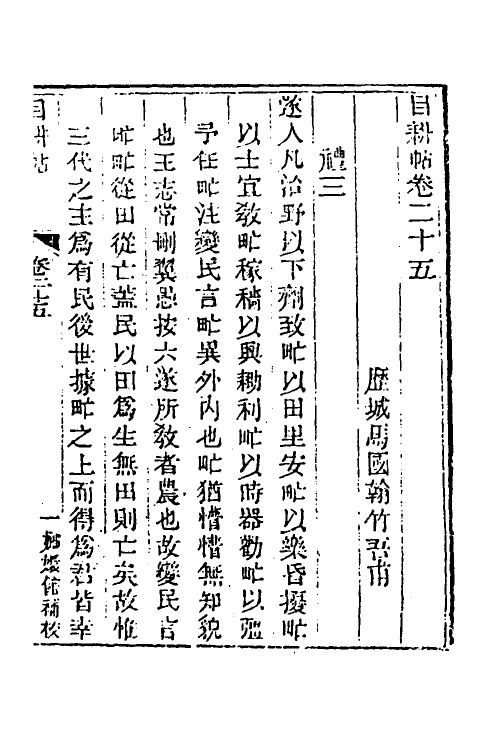 目耕帖卷二十五
歷城馬國翰竹吾甫
禮三
遂人凡治野以下劑致甿以田里安甿以樂昏擾甿
以土宜敎甿稼穡以興耡利甿以時器勸甿以彊
予任甿注變民言甿異外内也甿猶懵懵無知貌
也王志常刪翼愚按六遂所敎者農也故變民言
甿甿從田從亡蓋民以田爲生無田則亡矣故惟
三代之主爲有民後世據甿之上而得爲君皆幸
目耕帖
卷二十五
一
補校